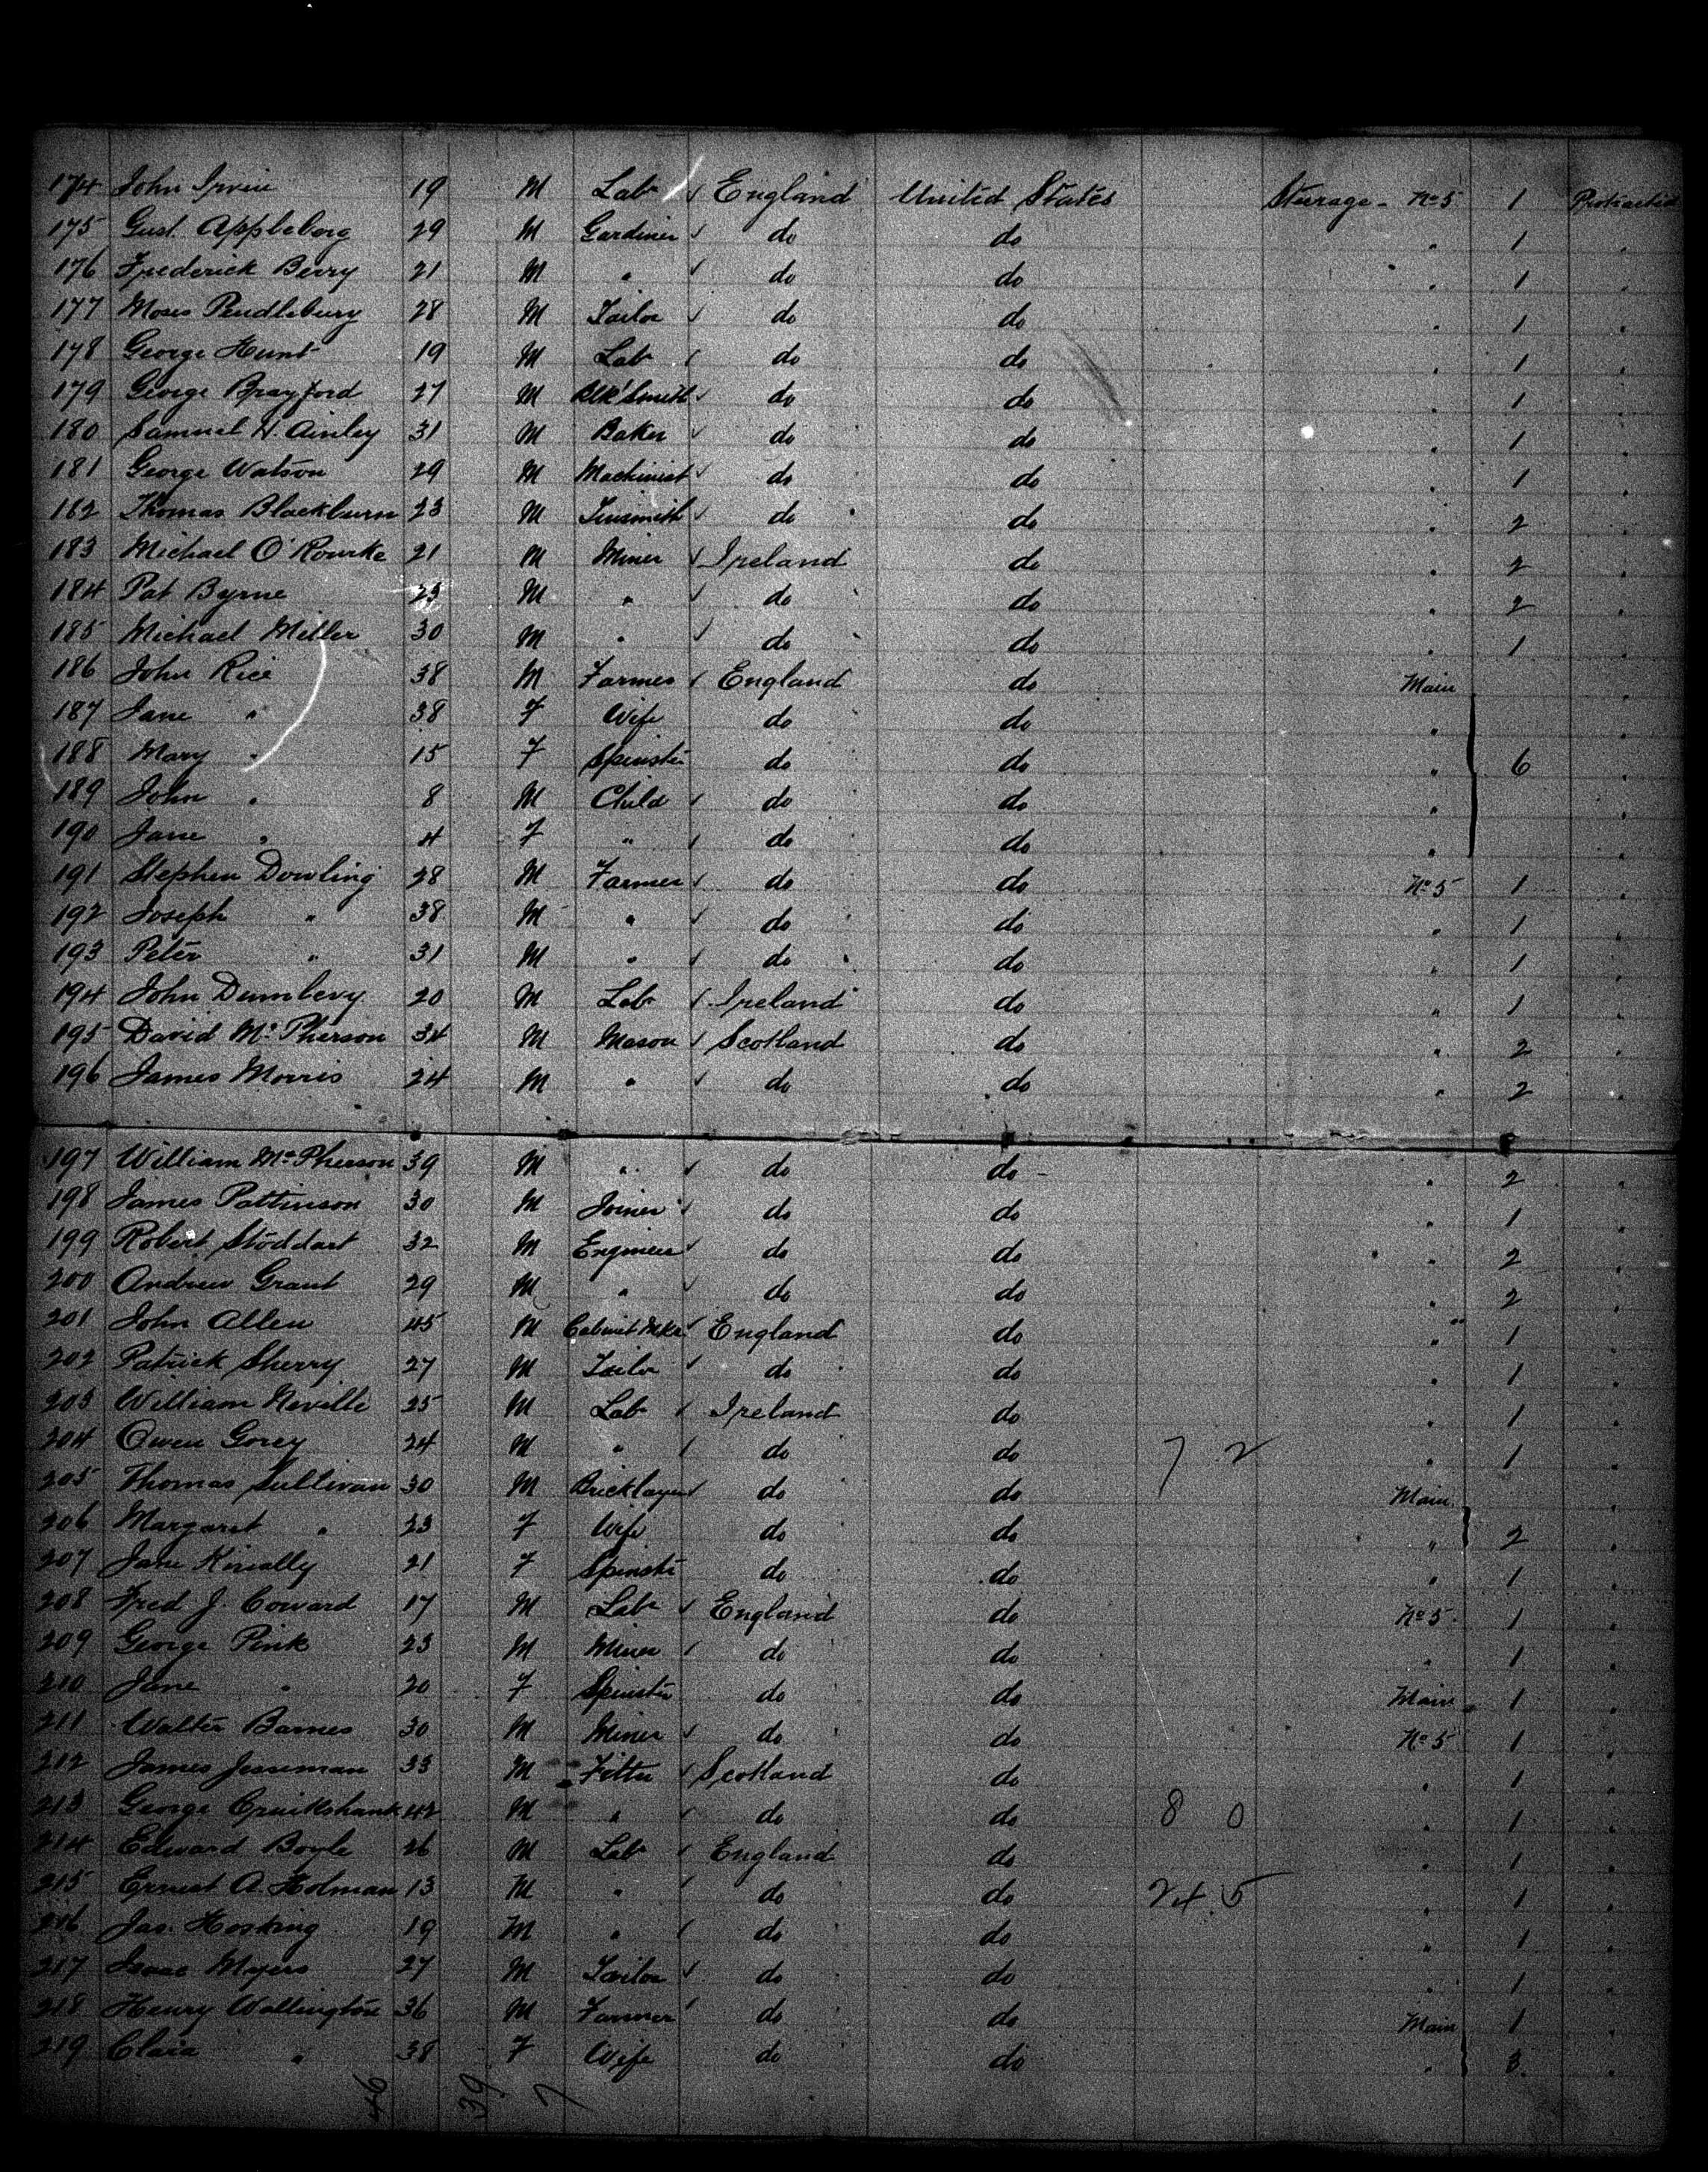 174 John Irvin 19 M Labr England United States Steerage - No 5 1 Protracted
175 Gust. Appleberg 29 M Gardiner do do " 1 "
176 Frederick Berry 21 M " do do " 1 "
177 Moses Pendlebury 28 M Tailor do do " 1 "
178 George Hunt 19 M Labr do do " 1 "
179 George Brayford 27 M Blk'Smith do do " 1 "
180 Samuel H. Ainley 31 M Baker do do " 1 "
181 George Watson 29 M Machinist do do " 1 "
182 Thomas Blackburn 23 M Tinsmith do do " 2 "
183 Michael O'Rourke 21 M Miner Ireland do " 2 "
184 Pat Byrne 23 M " do do " 2 "
185 Michael Miller 30 M " do do " 1 "
186 John Rice 38 M Farmer England do Main "
187 Jane " 38 F Wife do do " "
188 Mary " 15 F Spinster do do " 6 "
189 John " 8 M Child do do " "
190 Jane " 4 F " do do " "
191 Stephen Dowling 28 M Farmer do do No 5 1 "
192 Joseph " 38 M " do do " 1 "
193 Peter " 31 M " do do " 1 "
194 John Dumlevy 20 M Labr Ireland do " 1 "
195 David McPherson 34 M Mason Scotland do " 2 "
196 James Morris 24 M " do do " 2 "
197 William McPherson 39 M " do do " 2 "
198 James Pattinson 30 M Joiner do do " 1 "
199 Robert Stoddart 32 M Engineer do do " 2 "
200 Andrew Grant 29 M " do do " 2 "
201 John Allen 45 M Cabinet Mkr England do " 1 "
202 Patrick Sherry 27 M Tailor do do " 1 "
203 William Neville 25 M Labr Ireland do " 1 "
204 Owen Gorey 24 M " do do 7 2 " 1 "
205 Thomas Sullivan 30 M Bricklayer do do Main "
206 Margaret " 23 F Wife do do " 2 "
207 Jane Kinally 21 F Spinster do do " 1 "
208 Fred J. Coward 17 M Labr England do No 5 1 "
209 George Pink 23 M Miner do do " 1 "
210 Jane " 20 F Spinster do do Main 1 "
211 Walter Barnes 30 M Miner do do No 5 1 "
212 James Jessiman 33 M Fitter Scotland do " 1 "
213 George Cruikshank 42 M " do do 8 0 " 1 "
214 Edward Boyle 26 M Labr England do " 1 "
215 Ernest A. Holman 13 M " do do 24.5 " 1 "
216 Jas. Hosking 19 M " do do " 1 "
217 Isaac Myers 27 M Tailor do do " 1 "
218 Henry Wallington 36 M Farmer do do Main 1 "
219 Clara " 38 F Wife do do " 3 "
46 39 7